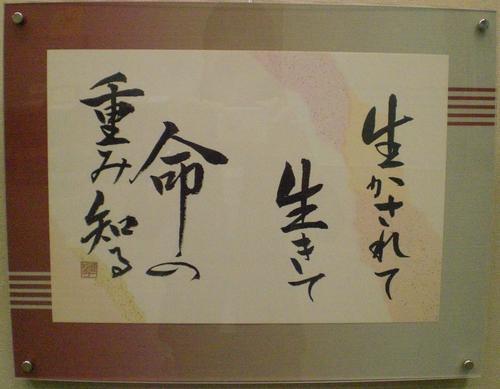 生かされて
生きて
命の
重み知る